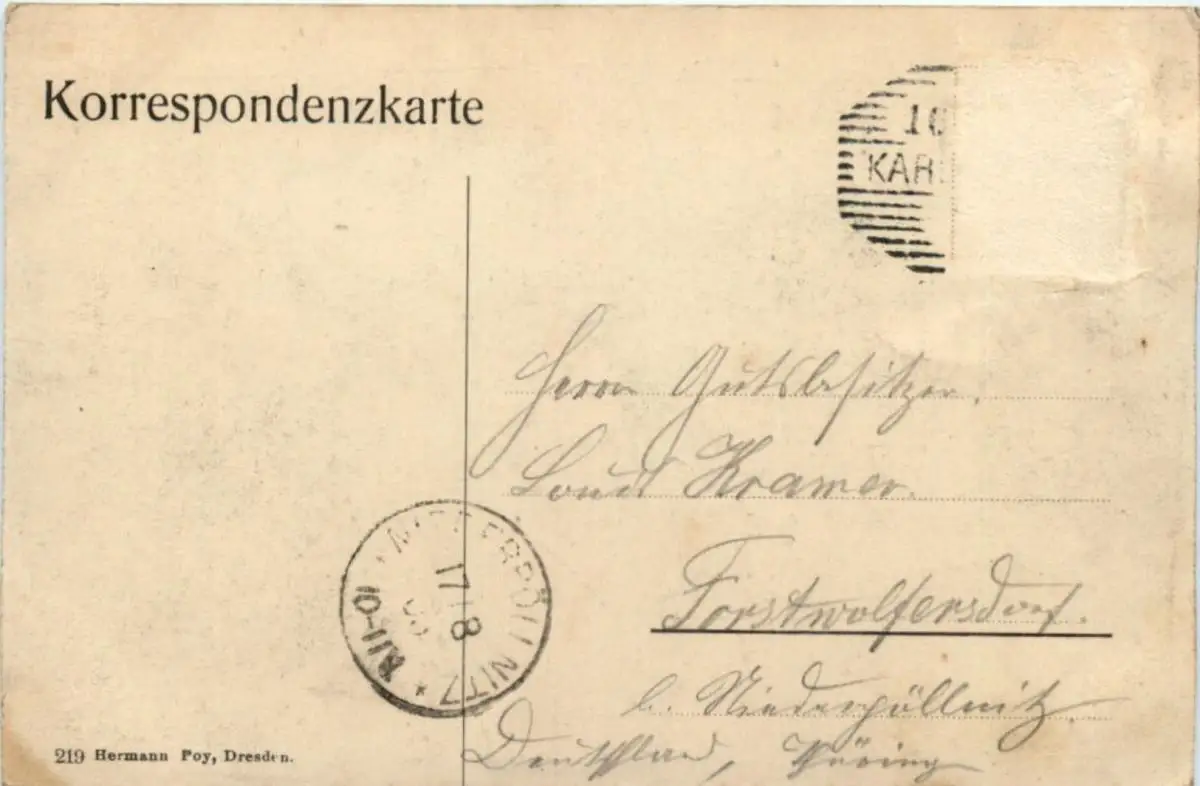 Korrespondenzkarte
16
KAR
Herrn Gutsbesitzer.
Louis Kramer.
Forstwolfersdorf.
b. Niederpöllnitz.
Deutschland, Thüring
NIEDERPÖLLNITZ *
17 8
10-11 V.
219 Hermann Poy, Dresden.